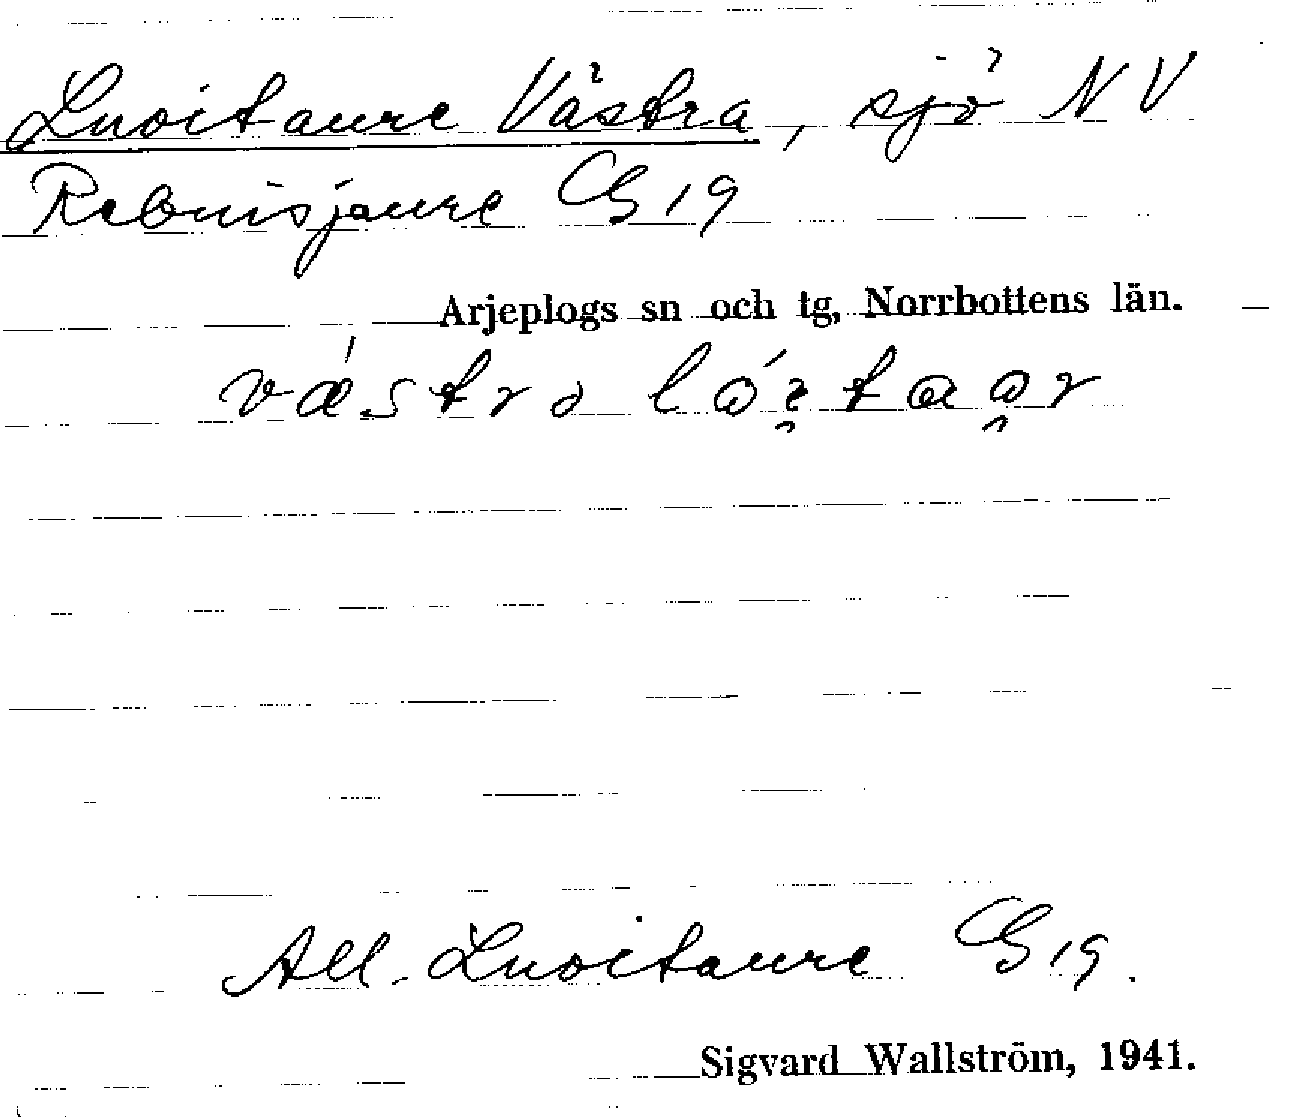 Luoitaure Västra, sjö NV
Rebnisjaure G 19
Arjeplogs sn och tg, Norrbottens län.
All. Luoitaure G 19.
Sigvard Wallström, 1941.